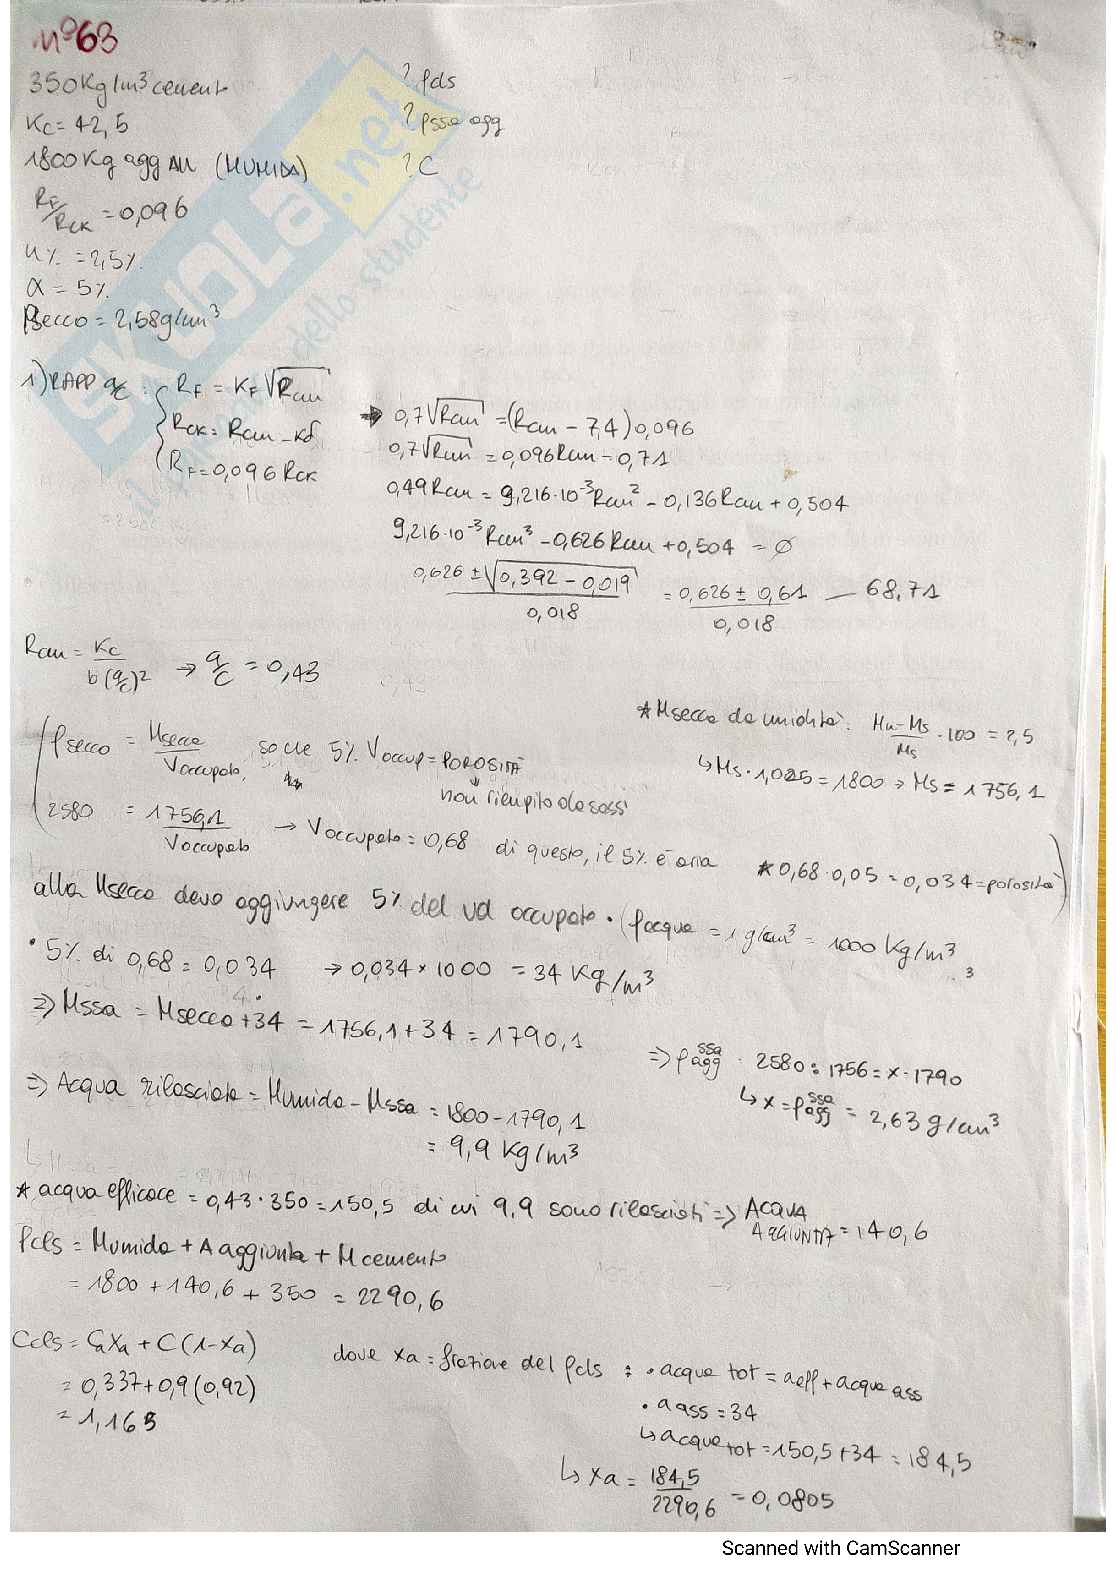 N°63
350Kg/m³ cemento
Kc = 42,5
1800 Kg agg AN (MUMIDA)
RF/RCK = 0,096
u% = 2,5%
α = 5%
ρsecco = 2,58g/cm³
? ρcls
? ρssa agg
? C
SKUOLA.net
il paradiso dello studente
1) RAPP a/c : RF = KF √Rcm
RCK = Rcm - Kδ
RF = 0,096 RCK
→ 0,7√Rcm = (Rcm - 7,4) 0,096
0,7√Rcm = 0,096Rcm - 0,71
0,49Rcm = 9,216·10⁻³Rcm² - 0,136Rcm + 0,504
9,216·10⁻³Rcm² - 0,626Rcm + 0,504 = ∅
0,626 ± √0,392 - 0,019 / 0,018 = 0,626 ± 0,61 / 0,018 — 68,71
Rcm = Kc / b(a/c)² → a/c = 0,43
* Msecco da umidità: Mu - Ms / Ms · 100 = 2,5
↳ Ms · 1,025 = 1800 → Ms = 1756,1
ρsecco = Msecco / Voccupato, so che 5% Voccup = POROSITÀ
↓ non riempito da sassi
2580 = 1756,1 / Voccupato → Voccupato = 0,68 di questo, il 5% è aria * 0,68·0,05 = 0,034 = porosità
alla Msecco devo aggiungere 5% del vol occupato · (ρacqua = 1 g/cm³ = 1000 Kg/m³
· 5% di 0,68 = 0,034 → 0,034 × 1000 = 34 Kg/m³
⇒ Mssa = Msecco + 34 = 1756,1 + 34 = 1790,1
⇒ ρagg ssa · 2580 : 1756 = x · 1790
↳ x = ρagg ssa = 2,63 g/cm³
⇒ Acqua rilasciata = Mumida - Mssa = 1800 - 1790,1
= 9,9 Kg/m³
* acqua efficace = 0,43 · 350 = 150,5 di cui 9,9 sono rilasciati ⇒ ACQUA AGGIUNTA = 140,6
ρcls = Mumida + A aggiunta + M cemento
= 1800 + 140,6 + 350 = 2290,6
Ccls = CaXa + C(1-Xa)
= 0,337 + 0,9(0,92)
= 1,165
dove xa = frazione del ρcls : · acqua tot = aeff + acqua ass
· aass = 34
↳ acqua tot = 150,5 + 34 = 184,5
↳ xa = 184,5 / 2290,6 = 0,0805
Scanned with CamScanner